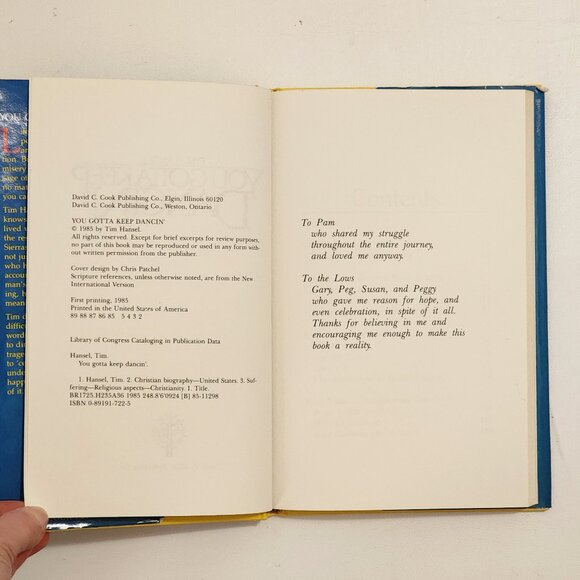 YOU G
tion. B
misery
sage of
no mat
you ca
Tim H
knows
lived w
the res
Sierras
not jus
who h
accoun
man's
ing, h
mean
Tim
difficu
word
to di
trage
to "c
unde
happ
of it.
David C. Cook Publishing Co., Elgin, Illinois 60120
David C. Cook Publishing Co., Weston, Ontario
YOU GOTTA KEEP DANCIN'
© 1985 by Tim Hansel.
All rights reserved. Except for brief excerpts for review purposes,
no part of this book may be reproduced or used in any form with-
out written permission from the publisher.
Cover design by Chris Patchel
Scripture references, unless otherwise noted, are from the New
International Version
First printing, 1985
Printed in the United States of America
89 88 87 86 85 5 4 3 2
Library of Congress Cataloging in Publication Data
Hansel, Tim.
You gotta keep dancin'.
1. Hansel, Tim. 2. Christian biography—United States. 3. Suf-
fering—Religious aspects—Christianity. I. Title.
BR1725.H235A36 1985 248.8'6'0924 [B] 85-11298
ISBN 0-89191-722-5
To Pam
who shared my struggle
throughout the entire journey,
and loved me anyway.
To the Lows
Gary, Peg, Susan, and Peggy
who gave me reason for hope, and
even celebration, in spite of it all.
Thanks for believing in me and
encouraging me enough to make this
book a reality.